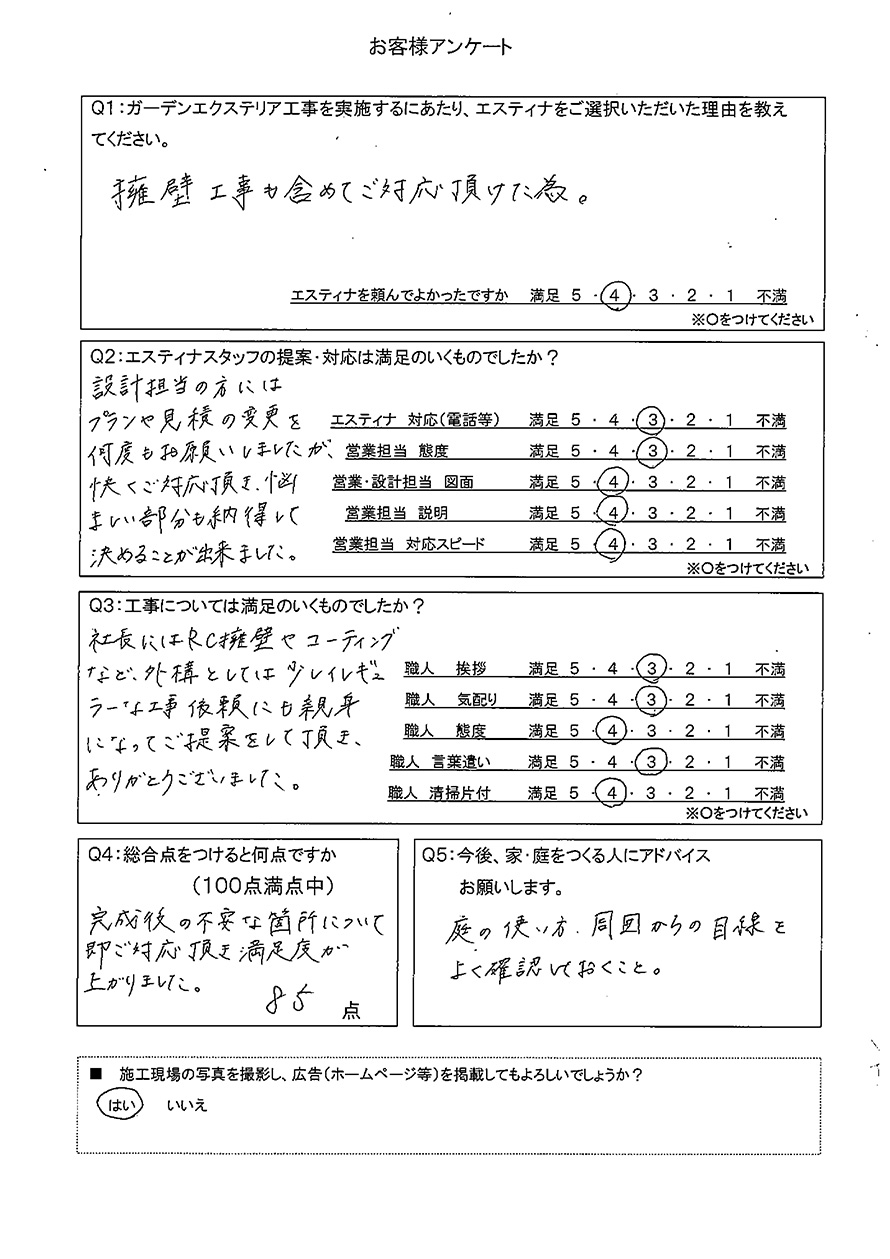 お客様アンケート
Q1：ガーデンエクステリア工事を実施するにあたり、エスティナをご選択いただいた理由を教え
てください。
擁壁工事も含めてご対応頂けた為。
エスティナを頼んでよかったですか 満足 5 ・ 4 ・ 3 ・ 2 ・ 1 不満
※〇をつけてください
Q2：エスティナスタッフの提案・対応は満足のいくものでしたか？
設計担当の方には
プランや見積の変更を
何度もお願いしましたが、
快くご対応頂き、悩
ましい部分も納得して
決めることが出来ました。
エスティナ 対応（電話等） 満足 5 ・ 4 ・ 3 ・ 2 ・ 1 不満
営業担当 態度 満足 5 ・ 4 ・ 3 ・ 2 ・ 1 不満
営業・設計担当 図面 満足 5 ・ 4 ・ 3 ・ 2 ・ 1 不満
営業担当 説明 満足 5 ・ 4 ・ 3 ・ 2 ・ 1 不満
営業担当 対応スピード 満足 5 ・ 4 ・ 3 ・ 2 ・ 1 不満
※〇をつけてください
Q3：工事については満足のいくものでしたか？
社長にはRC擁壁やコーティング
など、外構としては少しイレギュ
ラーな工事依頼にも親身
になってご提案をして頂き、
ありがとうございました。
職人 挨拶 満足 5 ・ 4 ・ 3 ・ 2 ・ 1 不満
職人 気配り 満足 5 ・ 4 ・ 3 ・ 2 ・ 1 不満
職人 態度 満足 5 ・ 4 ・ 3 ・ 2 ・ 1 不満
職人 言葉遣い 満足 5 ・ 4 ・ 3 ・ 2 ・ 1 不満
職人 清掃片付 満足 5 ・ 4 ・ 3 ・ 2 ・ 1 不満
※〇をつけてください
Q4：総合点をつけると何点ですか
（100点満点中）
完成後の不安な箇所について
即ご対応頂き満足度が
上がりました。
85 点
Q5：今後、家・庭をつくる人にアドバイス
お願いします。
庭の使い方、周囲からの目線を
よく確認しておくこと。
■ 施工現場の写真を撮影し、広告（ホームページ等）を掲載してもよろしいでしょうか？
はい いいえ